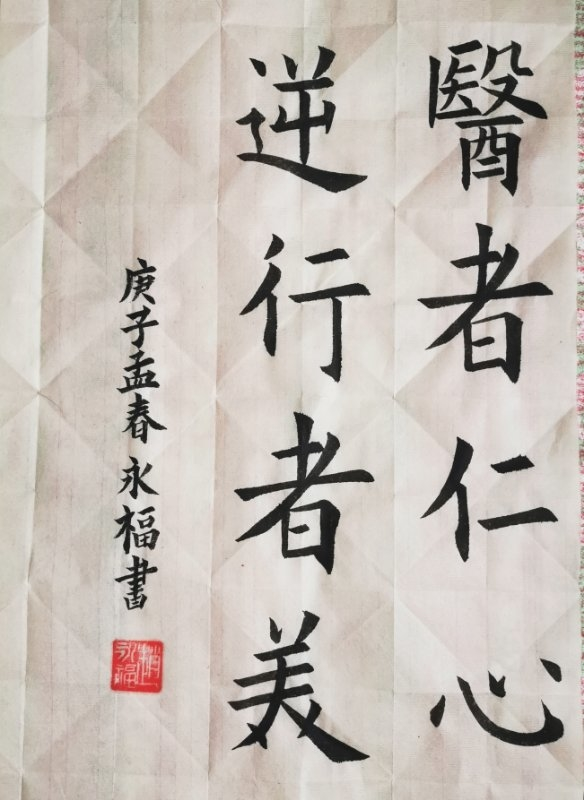 醫者仁心
逆行者美
庚子孟春永福書